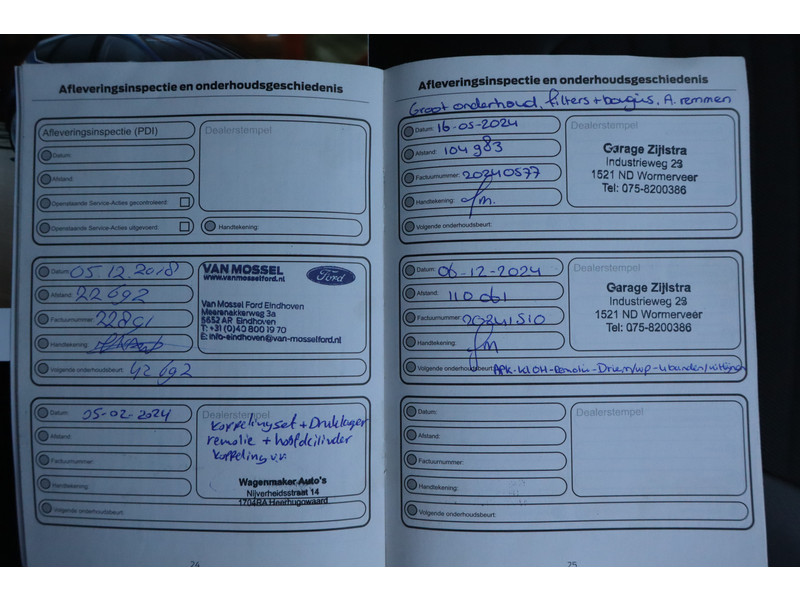 Afleveringsinspectie en onderhoudsgeschiedenis
Afleveringsinspectie (PDI)
Datum:
Afstand:
Openstaande Service-Acties gecontroleerd:
Openstaande Service-Acties uitgevoerd:
Dealerstempel
Handtekening:
Datum: 05.12.2018
Afstand: 22692
Factuurnummer: 22891
Handtekening:
Volgende onderhoudsbeurt: 42692
VAN MOSSEL
www.vanmosselford.nl
Ford
Van Mossel Ford Eindhoven
Meerenakkerweg 3a
5652 AR Eindhoven
T: +31 (0)40 800 19 70
E: info-eindhoven@van-mosselford.nl
Datum: 05-02-2024
Afstand:
Factuurnummer:
Handtekening:
Volgende onderhoudsbeurt:
Dealerstempel
koppelingset + Druklager
remolie + hoofdcilinder
koppeling v.v.
Wagenmaker Auto's
Nijverheidsstraat 14
1704BA Heerhugowaard
24
Afleveringsinspectie en onderhoudsgeschiedenis
Groot onderhoud, filters + bougies, A. remmen
Datum: 16-05-2024
Afstand: 104983
Factuurnummer: 20240577
Handtekening:
Volgende onderhoudsbeurt:
Dealerstempel
Garage Zijlstra
Industrieweg 23
1521 ND Wormerveer
Tel: 075-8200386
Datum: 06-12-2024
Afstand: 110061
Factuurnummer: 20241510
Handtekening:
Volgende onderhoudsbeurt: APK-KLOH-Remolie-
Dealerstempel
Garage Zijlstra
Industrieweg 23
1521 ND Wormerveer
Tel: 075-8200386
Datum:
Afstand:
Factuurnummer:
Handtekening:
Volgende onderhoudsbeurt:
Dealerstempel
25